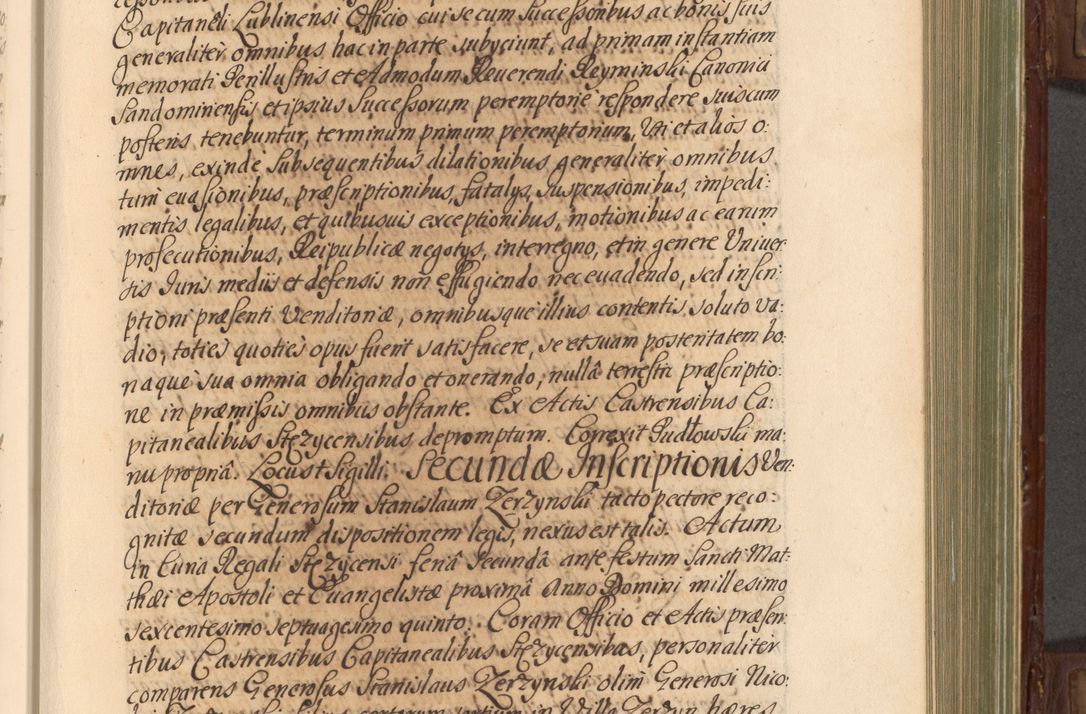 Capitaneali Lublinensi Officio cui se cum Successoribus ac bonis suis
generaliter omnibus hac in parte subyciunt, ad primam instantiam
memorati Perillustris et Admodum Reverendi Reyminski Canonici
Sandomiriensis, et ipsius Successorum peremptorie respondere suis cum
posteris tenebuntur, terminum primum peremptorium, Uti et alios o:
mnes, exinde subsequentibus dilationibus generaliter omnibus
tum evasionibus, præscriptionibus, fatalys, suspensionibus, impedi:
mentis legalibus, et quibusvis exceptionibus, motionibus ac earum
prosecutionibus, Reipublicæ negotys, interregno, et in genere Univer:
sis Juris mediis et defensis non effugiendo nec evadendo, sed inscri:
ptioni præsenti Venditoriæ, omnibusque illius contentis, soluto va:
dio, toties quoties opus fuerit satisfacere, se et suam posteritatem bo:
naque sua omnia obligando et onerando, nullâ terrestri præscriptio:
ne in præmissis omnibus obstante. Ex Actis Castrensibus Ca:
pitanealibus Stęzycensibus depromptum. Correxit Pudłowski ma:
nu propriâ. Locus Sigilli. Secundæ Inscriptionis Ven:
ditoriæ per Generosum Stanislaum Zerzynski tacto pectore reco:
gnitæ secundum dispositionem legis, nexus est talis. Actum
in Curia Regali Stęzycensi feriâ secundâ ante festum Sancti Mat:
thæi Apostoli et Evangelistæ proximâ Anno Domini millesimo
sexcentesimo septuagesimo quinto. Coram Officio et Actis præsen:
tibus Castrensibus Capitanealibus Stęzycensibus, personaliter
comparens Generosus Stanislaus Zerzynski olim Generosi Nico:
in Villa Zerzyn hæres